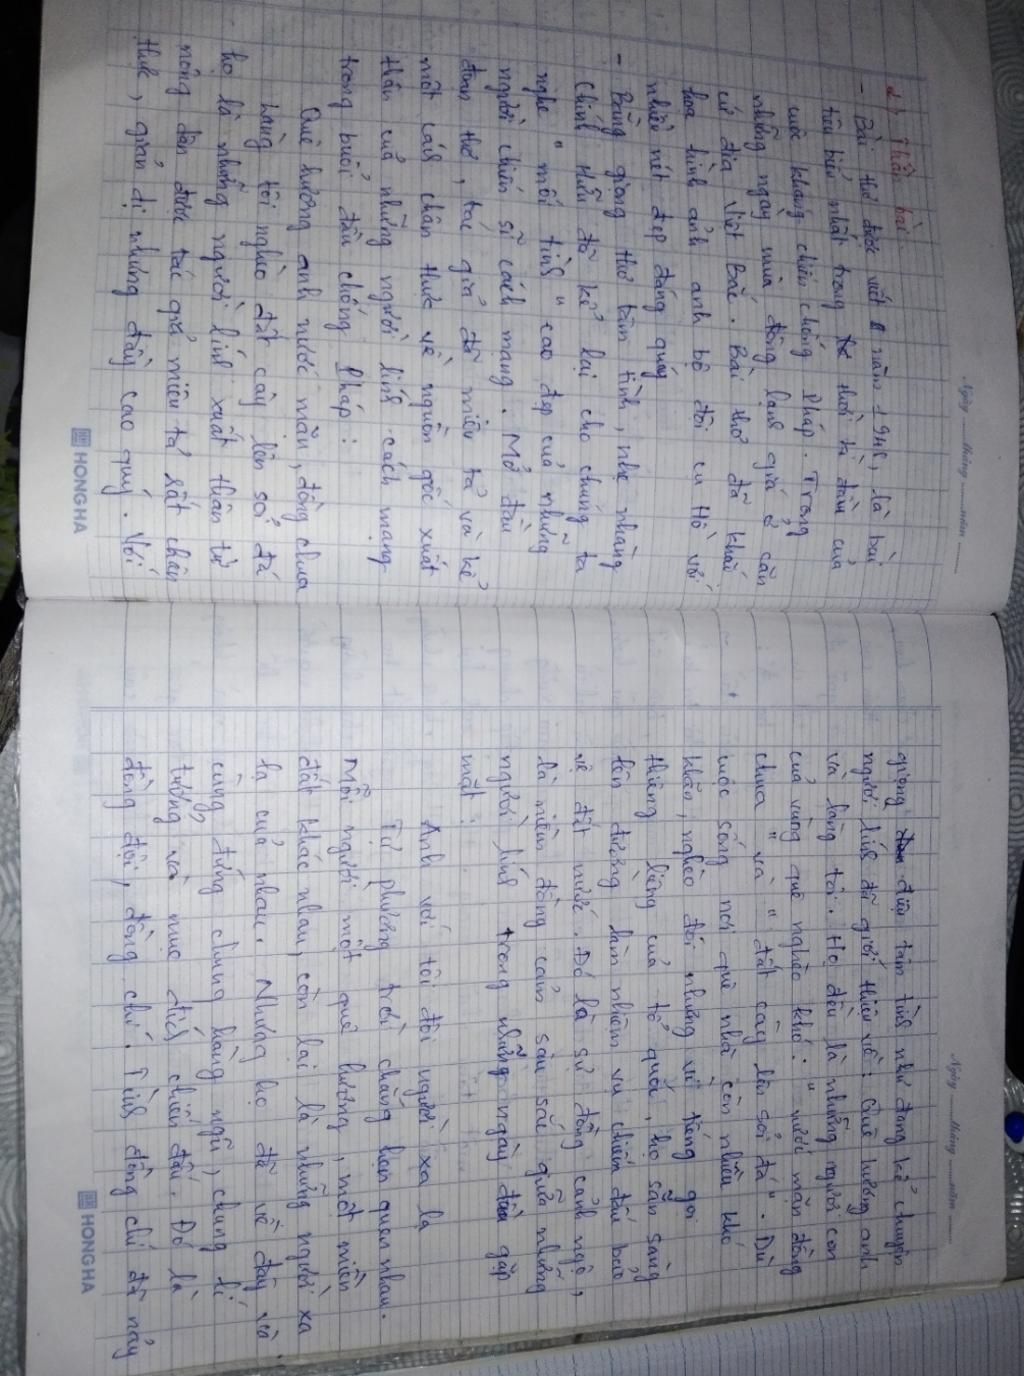 Ngày ...... tháng ...... năm ......
2) Thân bài
- Bài thơ được viết năm 1948, là bài
tiêu biểu nhất trong thời kì đầu của
cuộc kháng chiến chống Pháp. Trong
những ngày mùa đông lạnh giá ở căn
cứ địa Việt Bắc. Bài thơ đã khắc
hoạ hình ảnh anh bộ đội cụ Hồ với
nhiều nét đẹp đáng quý
- Bằng giọng thơ tâm tình, nhẹ nhàng
Chính Hữu đã kể lại cho chúng ta
nghe "mối tình" cao đẹp của những
người chiến sĩ cách mạng. Mở đầu
đoạn thơ, tác giả đã miêu tả và kể
một cách chân thực về nguồn gốc xuất
thân của những người lính cách mạng
trong buổi đầu chống Pháp:
Quê hương anh nước mặn, đồng chua
Làng tôi nghèo đất cày lên sỏi đá
họ là những người lính xuất thân từ
nông dân được tác giả miêu tả rất chân
thực, giản dị nhưng đầy cao quý. Với
HONGHA
Ngày ...... tháng ...... năm ......
giọng điệu tâm tình như đang kể chuyện
người lính đã giới thiệu về: Quê hương anh
và làng tôi. Họ đều là những người con
của vùng quê nghèo khó: "nước mặn đồng
chua" và "đất cày lên sỏi đá". Dù
cuộc sống nơi quê nhà còn nhiều khó
khăn, nghèo đói nhưng vì tiếng gọi
thiêng liêng của tổ quốc, họ sẵn sàng
lên đường làm nhiệm vụ chiến đấu bảo
vệ đất nước. Đó là sự đồng cảnh ngộ,
là niềm đồng cảm sâu sắc giữa những
người lính trong những ngày đầu gặp
mặt:
Anh với tôi đôi người xa lạ
Từ phương trời chẳng hẹn quen nhau.
Mỗi người một quê hương, một miền
đất khác nhau, còn lại là những người xa
lạ của nhau. Nhưng họ đã về đây và
cùng đứng chung hàng ngũ, chung lí
tưởng và mục đích chiến đấu. Đó là
đồng đội, đồng chí. Tình đồng chí đã nảy
HONGHA